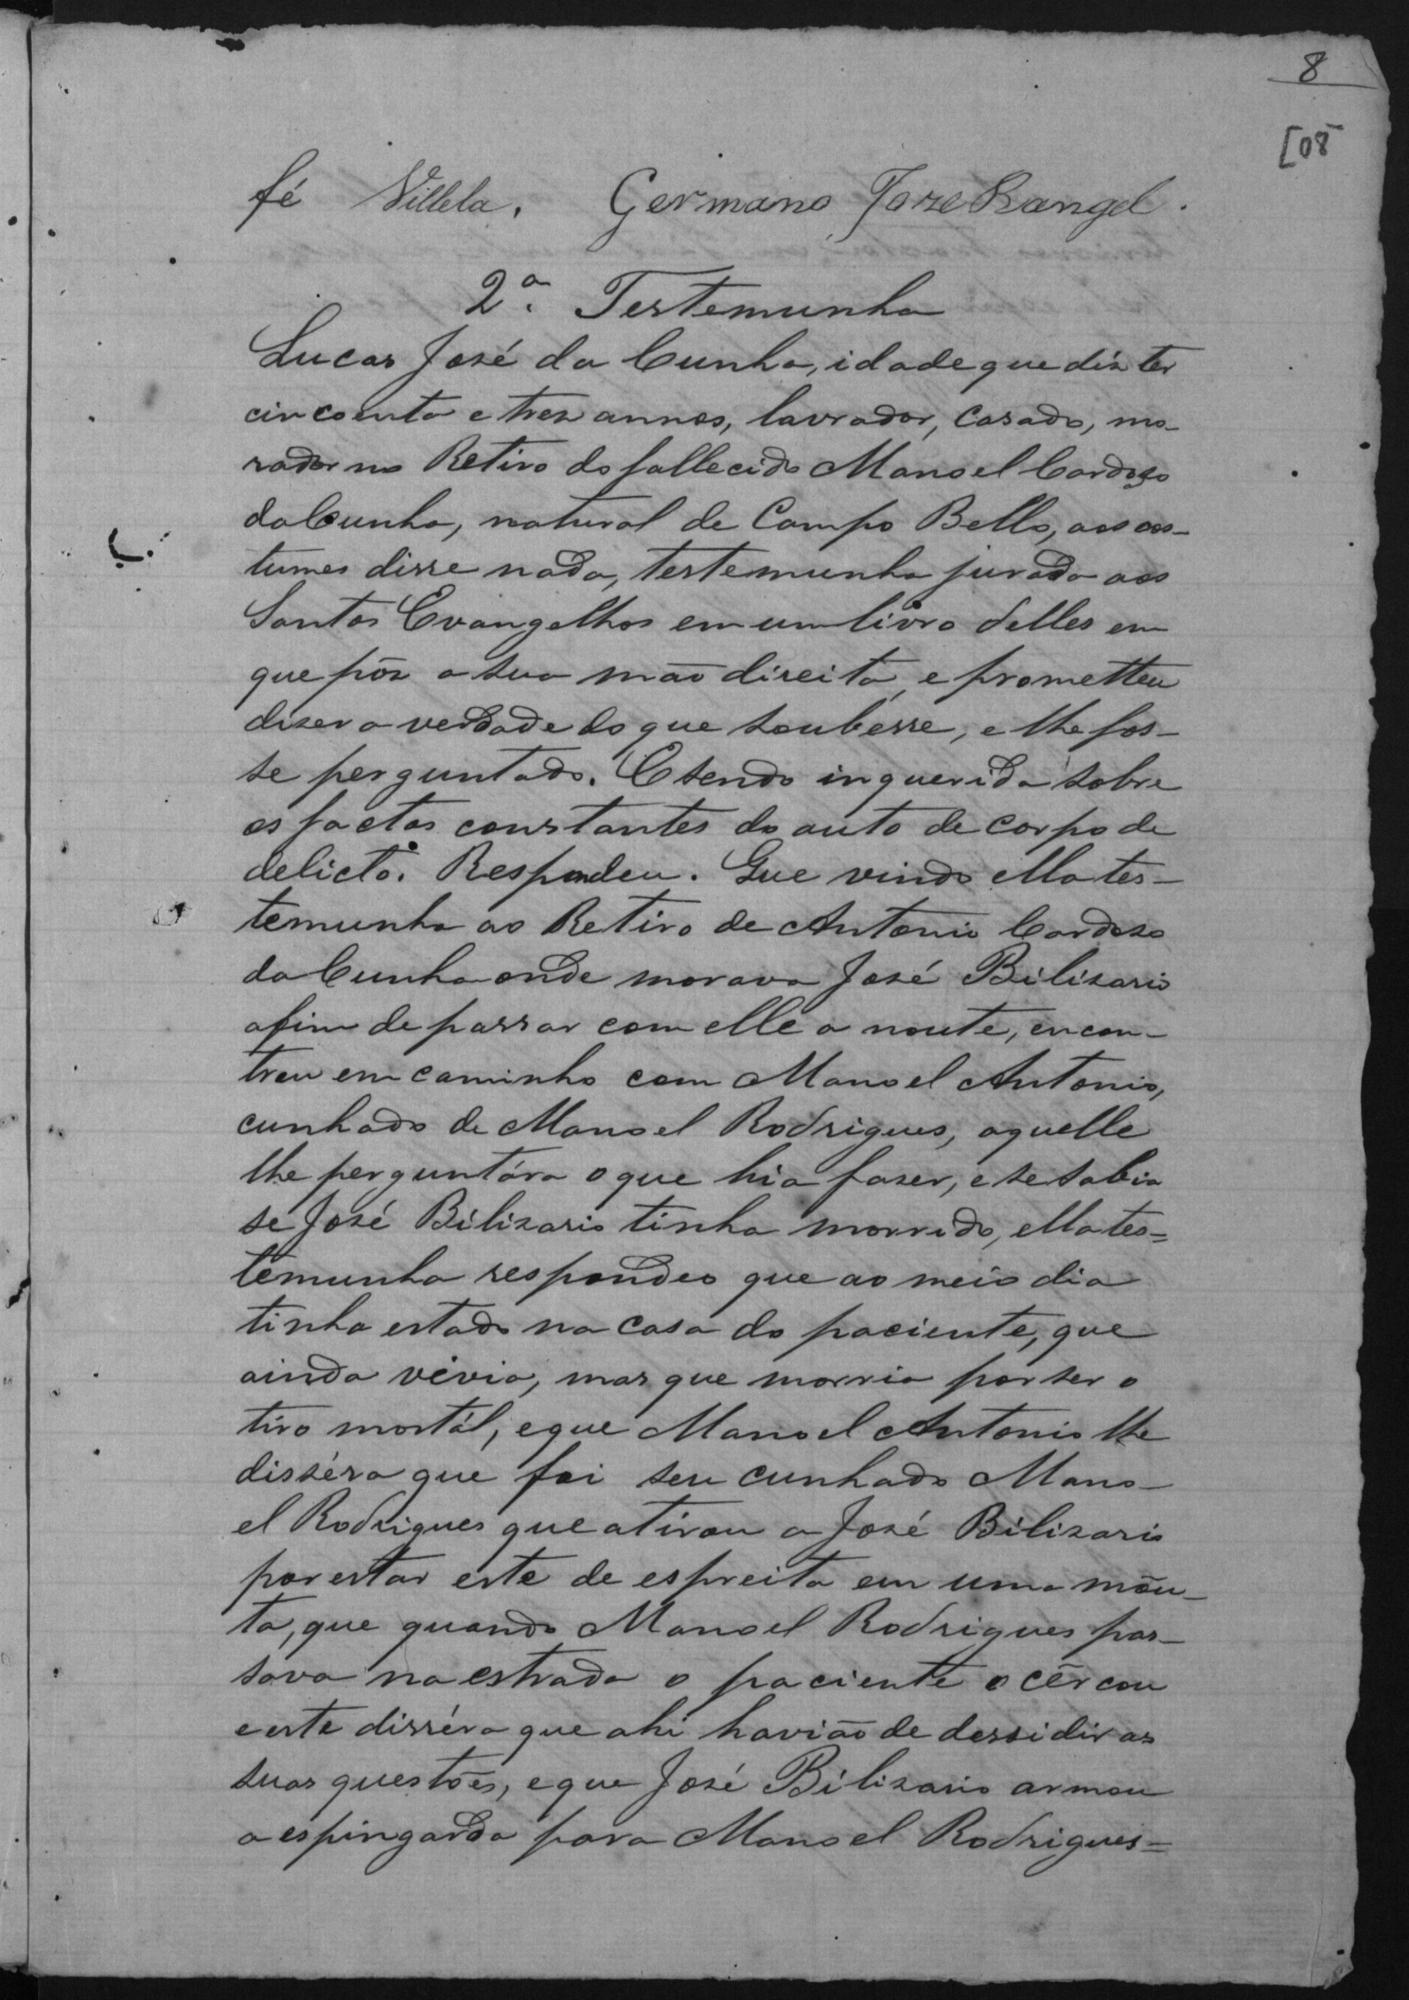 8
[08
fé Villela. Germano Joze Rangel.
2ª. Testemunha
Lucas José da Cunha, idade que diz ter
cincoenta e tres annos, lavrador, casado, mo-
rador no Retiro do fallecido Manoel Cardozo
da Cunha, natural de Campo Bello, aos cos-
tumes disse nada, testemunha jurada aos
Santos Evangelhos em um livro delles em
que pôz a sua mão direita, e prometteu
dizer a verdade do que soubesse, e lhe fos-
se perguntado. E sendo inquerida sobre
os factos constantes do auto de corpo de
delicto. Respondeu. Que vindo ella tes-
temunha ao Retiro de Antonio Cardozo
da Cunha onde morava José Bilizario
afim de passar com elle a noute, encon-
trou em caminho com Manoel Antonio,
cunhado de Manoel Rodrigues, aquelle
lhe perguntára o que hia fazer, e se sabia
se José Bilizario tinha morrido, ella tes=
temunha respondeo que ao meio dia
tinha estado na casa do paciente, que
ainda vivia, mas que morria por ser o
tiro mortál, e que Manoel Antonio lhe
disséra que foi seu cunhado Mano-
el Rodrigues que atirou a José Bilizario
por estar este de espreita em uma môu-
ta, que quando Manoel Rodrigues pas-
sava na estrada o paciente o cêrcou
e este disséra que ahi havião de dessidir as
suas questões, e que José Bilizario armou
a espingarda para Manoel Rodrigues=